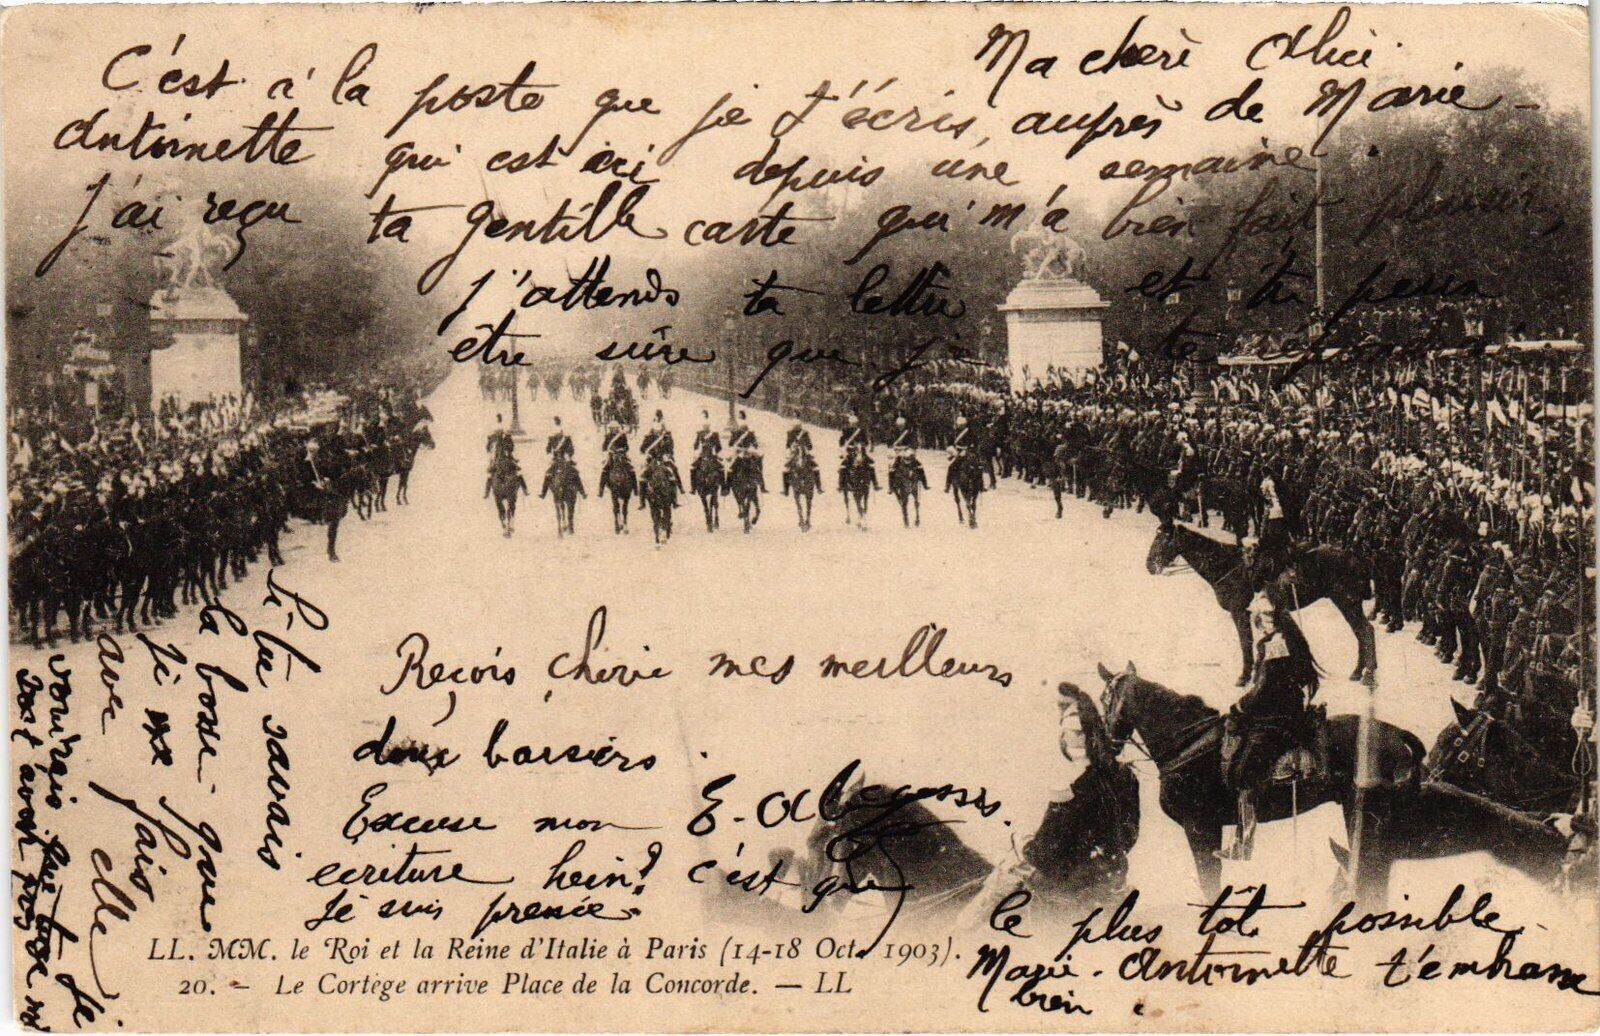 Ma cheré Alice
C'est à la poste que je t'écris, auprès de Marie-
Antoinette qui est ici depuis une semaine.
J'ai reçu ta gentille carte qui m'a bien fait plaisir,
j'attends ta lettre et tu peux
être sûre que je te répondrai
le plus tôt possible.
Marie-Antoinette t'embrasse
bien.
Reçois chérie mes meilleurs
doux baisers.
E. Al
Excuse mon
écriture hein? c'est que
je suis pressée.
si tu savais
la bosse que
je me fais
avec elle
Je
voudrais que tu
sois avec nous
LL. MM. le Roi et la Reine d'Italie à Paris (14-18 Oct. 1903).
20. - Le Cortège arrive Place de la Concorde. - LL